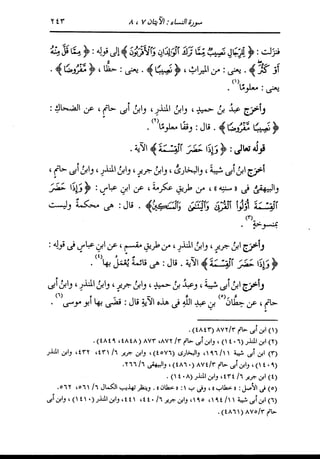 سورة النساء : الآيتان ٧ ، ٨ ٢٤٣
فنزلت : ﴿ لِلرِّجَالِ نَصِيبٌ مِّمَّا تَرَكَ الْوَالِدَانِ وَالْأَقْرَبُونَ ﴾ إلى قوله : ﴿ مِمَّا قَلَّ مِنْهُ
أَوْ كَثُرَ ﴾ . يعنى : من الميراثِ ، ﴿ نَصِيبًا ﴾ . يعنى : حظًّا ، ﴿ مَّفْرُوضًا ﴾ .
يعنى : معلومًا(١) .
وأخرَج عبدُ بنُ حميدٍ ، وابنُ المنذرِ ، وابنُ أبى حاتمٍ ، عن الضحاكِ :
﴿ نَصِيبًا مَّفْرُوضًا ﴾ . قال : وقفًا معلومًا(٢) .
قولُه تعالى : ﴿ وَإِذَا حَضَرَ الْقِسْمَةَ ﴾ الآية .
أخرَج ابنُ أبى شيبةَ ، والبخارىُّ ، وابنُ جريرٍ ، وابنُ المنذرِ ، وابنُ أبى حاتمٍ ،
والبيهقىُّ فى « سننِه » ، من طريقِ عكرمةَ ، عن ابنِ عباسٍ : ﴿ وَإِذَا حَضَرَ
الْقِسْمَةَ أُوْلُوا الْقُرْبَى وَالْيَتَامَى وَالْمَسَاكِينُ ﴾ . قال : هى محكمةٌ وليست
بمنسوخةٍ(٣) .
وأخرَج ابنُ جريرٍ ، وابنُ المنذرِ ، من طريقِ مقسمٍ ، عن ابنِ عباسٍ فى قولِه :
﴿ وَإِذَا حَضَرَ الْقِسْمَةَ ﴾ الآية . قال : هى قائمةٌ يُعملُ بها(٤) .
وأخرَج ابنُ أبى شيبةَ ، وعبدُ بنُ حميدٍ ، وابنُ جريرٍ ، وابنُ المنذرِ ، وابنُ أبى
حاتمٍ ، عن حِطَّانَ(٥) بنِ عبدِ اللهِ فى هذه الآيةِ قال : قضَى بها أبو موسى(٦) .
(١) ابن أبى حاتم ٨٧٢/٣ (٤٨٤٣) .
(٢) ابن المنذر (١٤٠٦) ، وابن أبى حاتم ٨٧٢/٣ ، ٨٧٣ (٤٨٤٨ ، ٤٨٤٩) .
(٣) ابن أبى شيبة ١٩٦/١١ ، والبخارى (٤٥٧٦) ، وابن جرير ٤٣١/٦ ، ٤٣٢ ، وابن المنذر
(١٤٠٩) ، وابن أبى حاتم ٨٧٤/٣ (٤٨٦٠) ، والبيهقى ٢٦٦/٦ .
(٤) ابن جرير ٤٣٤/٦ ، وابن المنذر (١٤٠٨) .
(٥) فى الأصل : « خطاب » ، وفى ب ١ : « خطان » . وينظر تهذيب الكمال ٥٦١/٦ ، ٥٦٢ .
(٦) ابن أبى شيبة ١٩٤/١١ ، ١٩٥ ، وابن جرير ٤٤٠/٦ ، ٤٤١ ، وابن المنذر (١٤١٠) ، وابن أبى
حاتم ٨٧٥/٣ (٤٨٦١) .